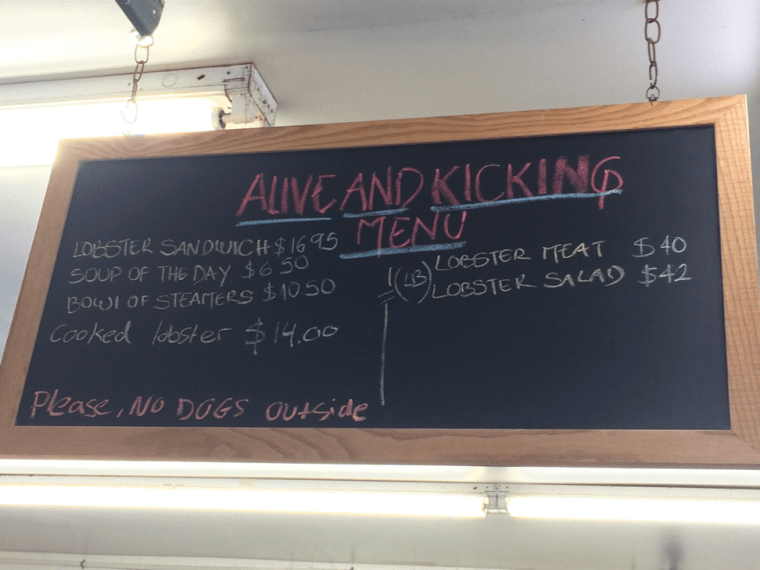 ALIVE AND KICKING
MENU
LOBSTER SANDWICH $16.95
SOUP OF THE DAY $6.50
BOWl OF STEAMERS $10.50
Cooked lobster $14.00
1(LB) LOBSTER MEAT $40
LOBSTER SALAD $42
Please, NO DOGS outside